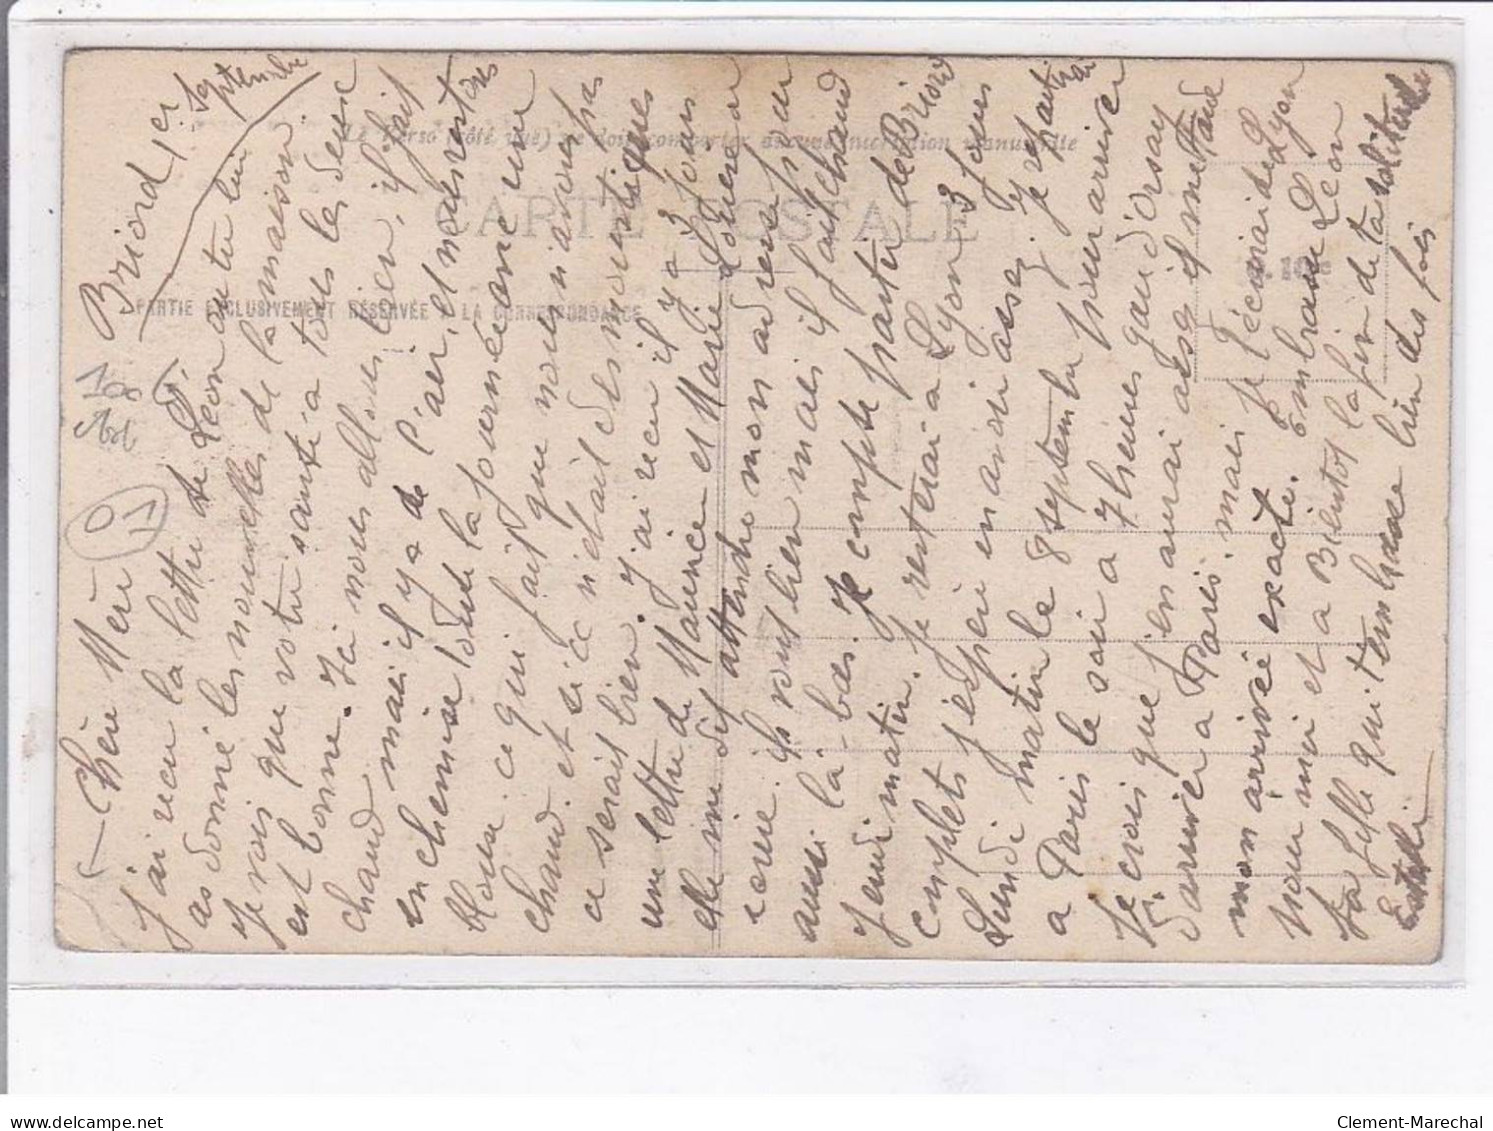 Briord 1er Septembre
Chère Mère
J'ai reçu la lettre de Léon où tu lui
as donné les nouvelles de la maison.
Je vois que votre santé à tous les deux
est bonne. Ici nous allons bien, il fait
chaud mais il y a de l'air, et nous restons
en chemise toute la journée avec une
blouse ce qui fait que nous n'avons pas
chaud. et si ce n'était des moustiques
ce serait bien. J'ai reçu il y a 3 jours
une lettre de Maurice et Marie Louise ou
elle me dit attendre mon adresse pour
ils vont bien mais il fait chaud
aussi là-bas. Je compte partir de Briord
Jeudi matin. Je resterai à Lyon 3 jours
complets j'espère en avoir assez. Je repartirai
Lundi matin le 8 septembre pour arriver
à Paris le soir à 7 heures gare d'orsay
Je crois que j'en aurai assez il me tarde
d'arriver à Paris. mais je t'écrirai de Lyon
mon arrivée exacte. Embrasse Léon
pour moi et à Bientôt la fin de ta solitude
Ta fille qui t'embrasse bien des fois
Le verso (côté vue) ne doit comporter aucune inscription manuscrite
CARTE POSTALE
PARTIE EXCLUSIVEMENT RÉSERVÉE A LA CORRESPONDANCE
108
01
delcampe.net
Clement-Marechal